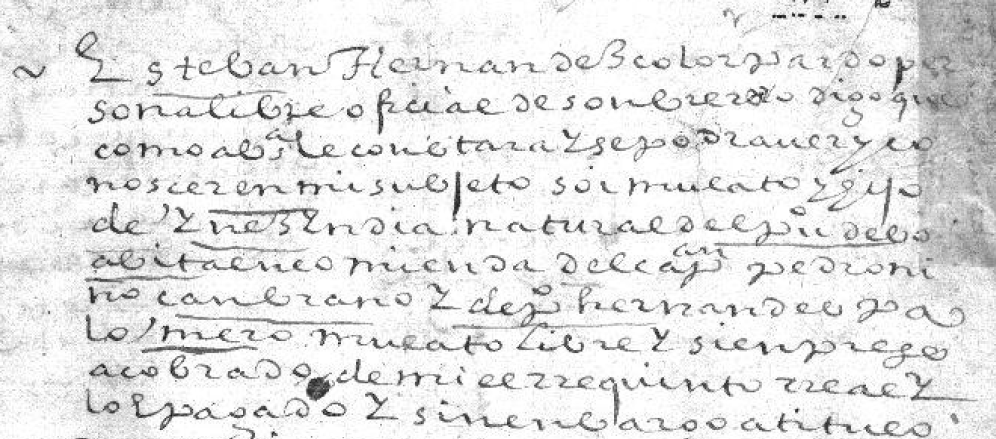 Esteban Hernandez color pardo per
sona libre oficial de sonbrerero digo que
como a bsa le constara y se podra ver y co
noscer en mi subjeto soi mulato y hijo
de ynes yndia natural del pu de bo
abita encomienda del capan pedro ni
no canbrano y de po hernandez pa
lomero mulato libre y sienpre se
a cobrado de mi el rrequinto rreal y
lo e pagado y sin enbargo a titulo